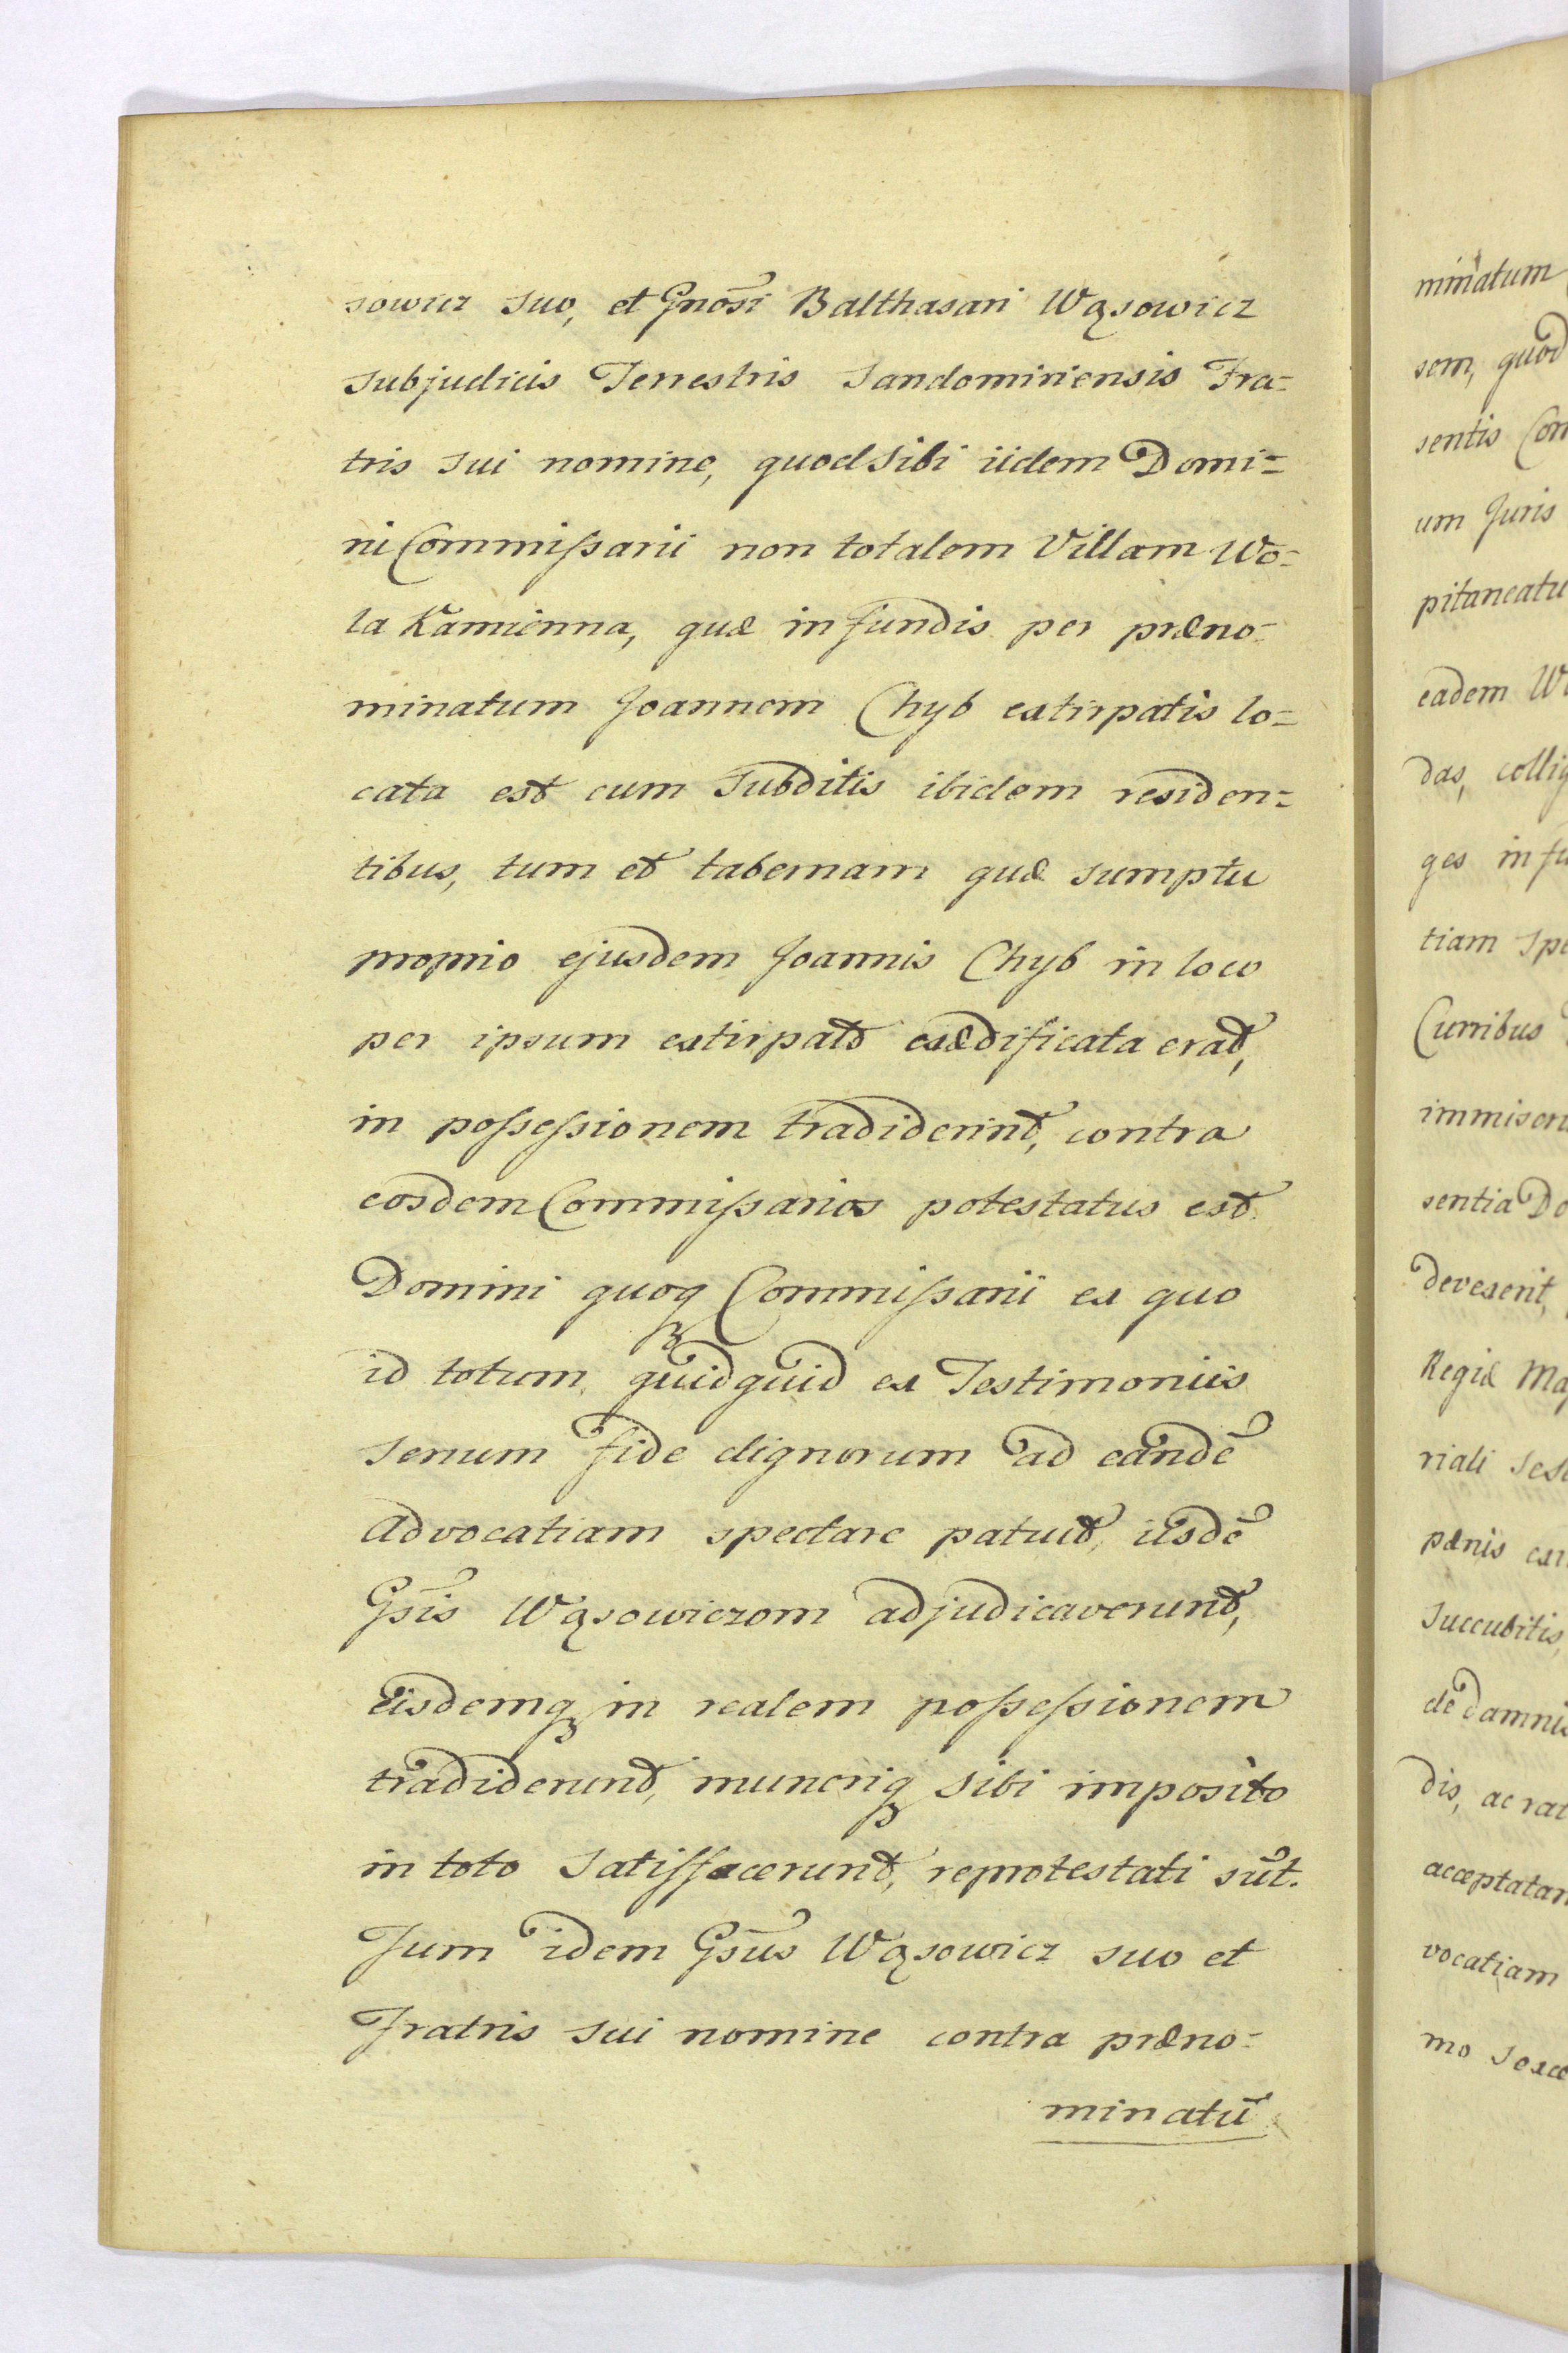 sowicz suo, et Gnōsi Balthasari Wąsowicz
Subjudicis Terrestris Sandomiriensis Fra=
tris sui nomine, quod sibi iidem Domi=
ni Commißarii non totalem Villam Wo=
la Kamienna, quæ in fundis per præno=
minatum Joannem Chyb extirpatis lo=
cata est cum Subditis ibidem residen=
tibus, tum et tabernam quæ sumptu
proprio ejusdem Joannis Chyb in loco
per ipsum extirpato exædificata erat,
in poßeßionem tradiderint, contra
eosdem Commißarios potestatus est.
Domini quoqꝫ Commißarii ex quo
id totum quidquid ex Testimoniis
Senum fide dignorum ad eandē
Advocatiam spectare patuit, iisdē
Gsis Wąsowiczom adjudicaverunt,
Eisdemqꝫ in realem poßeßionem
tradiderunt, muneriqꝫ sibi imposito
in toto Satisfacerunt, reprotestati sūt.
Tum idem Gsūs Wąsowicz suo et
Fratris sui nomine contra præno=
minatū
minatum
sem, quod
sentis Com
um Juris
pitaneatu
eadem W
das, collig
ges in fu
tiam Spe
Curribus
immiseru
sentia Do
devexerit,
Regiæ Maj
riali sese
pænis
Succubitis,
de damnis
dis, ac rat
acceptatam
vocatiam
mo